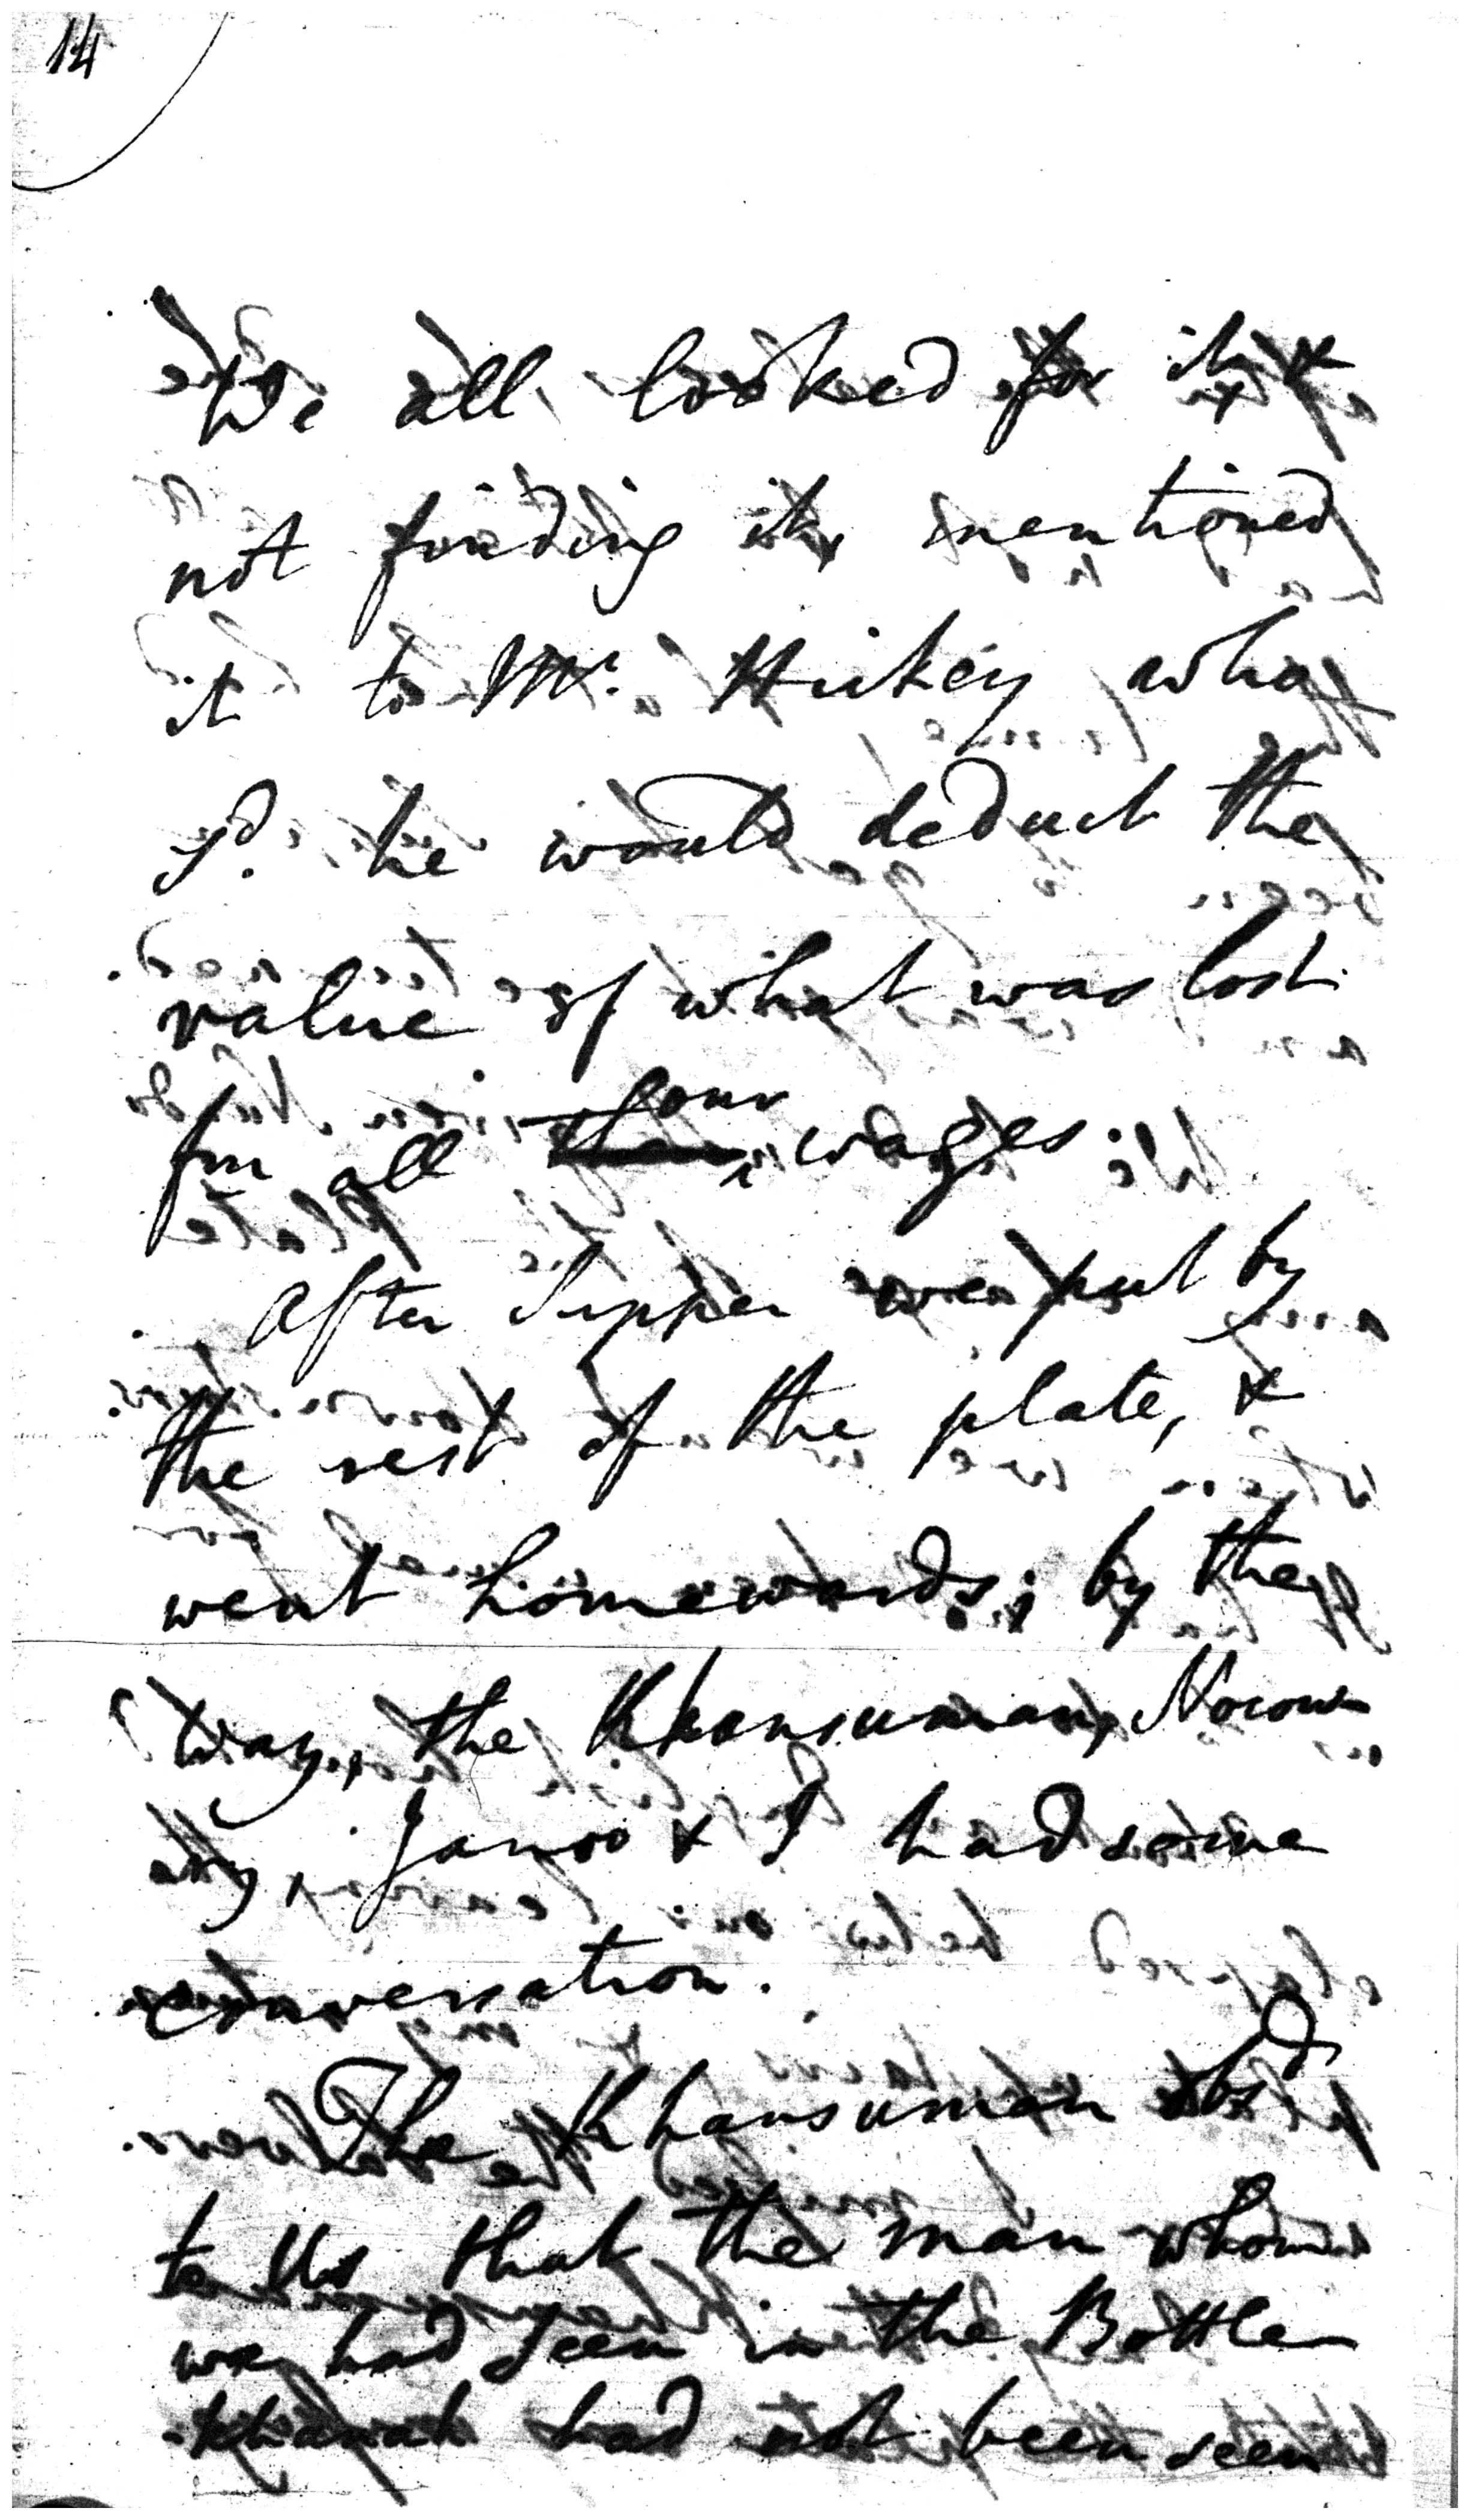 14
We all looked for it &
not finding it, mentioned
it to Mr. Hickey who
sd. he would deduct the
value of what was lost
fm all our wages.
After Supper we put by
the rest of the plate, &
went homewards; by the
way, the Khansuman,
Janoo & I had some
conversation.
The Khansuman obsd
to Us that the man whom
we had seen in the Bottle
-khanah had not been seen